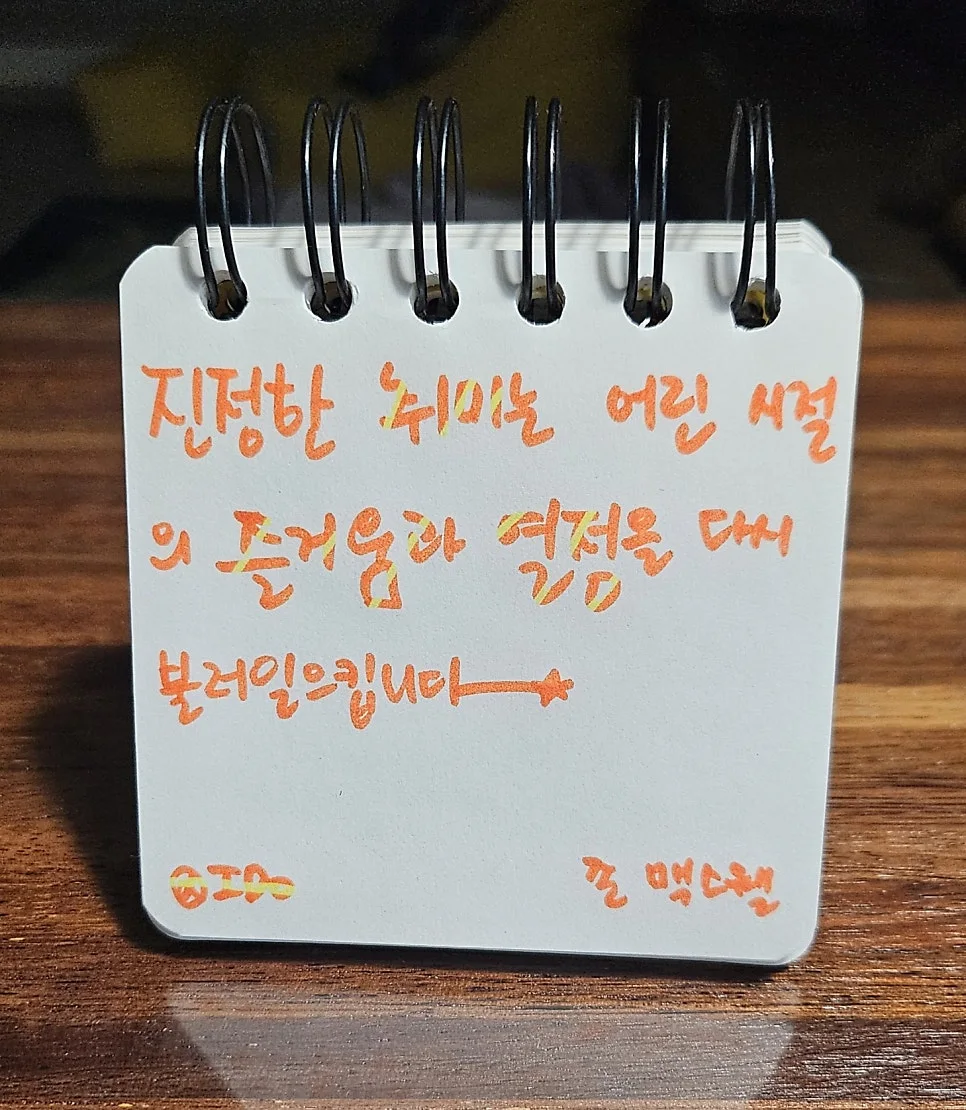 진정한 취미는 어린 시절
의 즐거움과 열정을 다시
불러일으킵니다
존 맥스웰